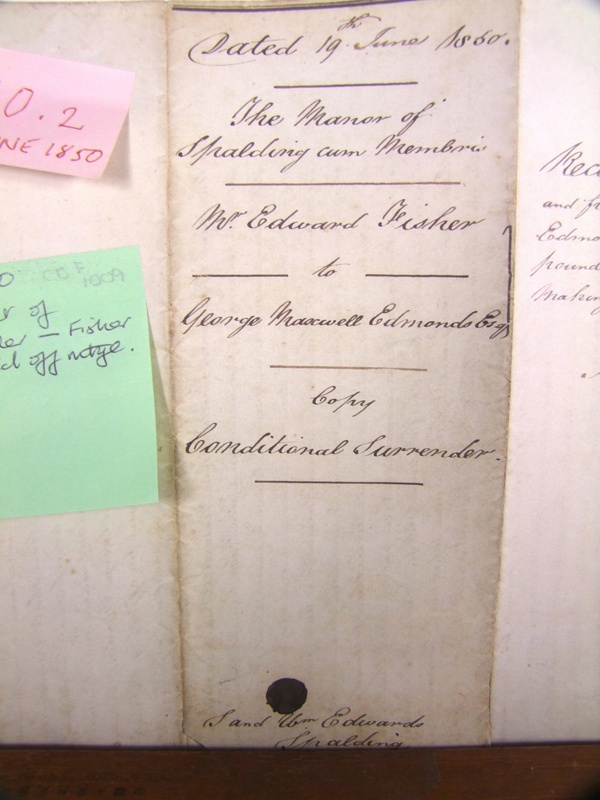 O. 2
NE 1850
O CCF 1009
r of
er — Fisher
d off mtge.
Dated 19th June 1850.
The Manor of
Spalding cum Membris
Mr. Edward Fisher
to
George Maxwell Edmonds Esqr
Copy
Conditional Surrender.
S and Wm Edwards
Spalding
Rec
and fr
Edmo
pound
Making